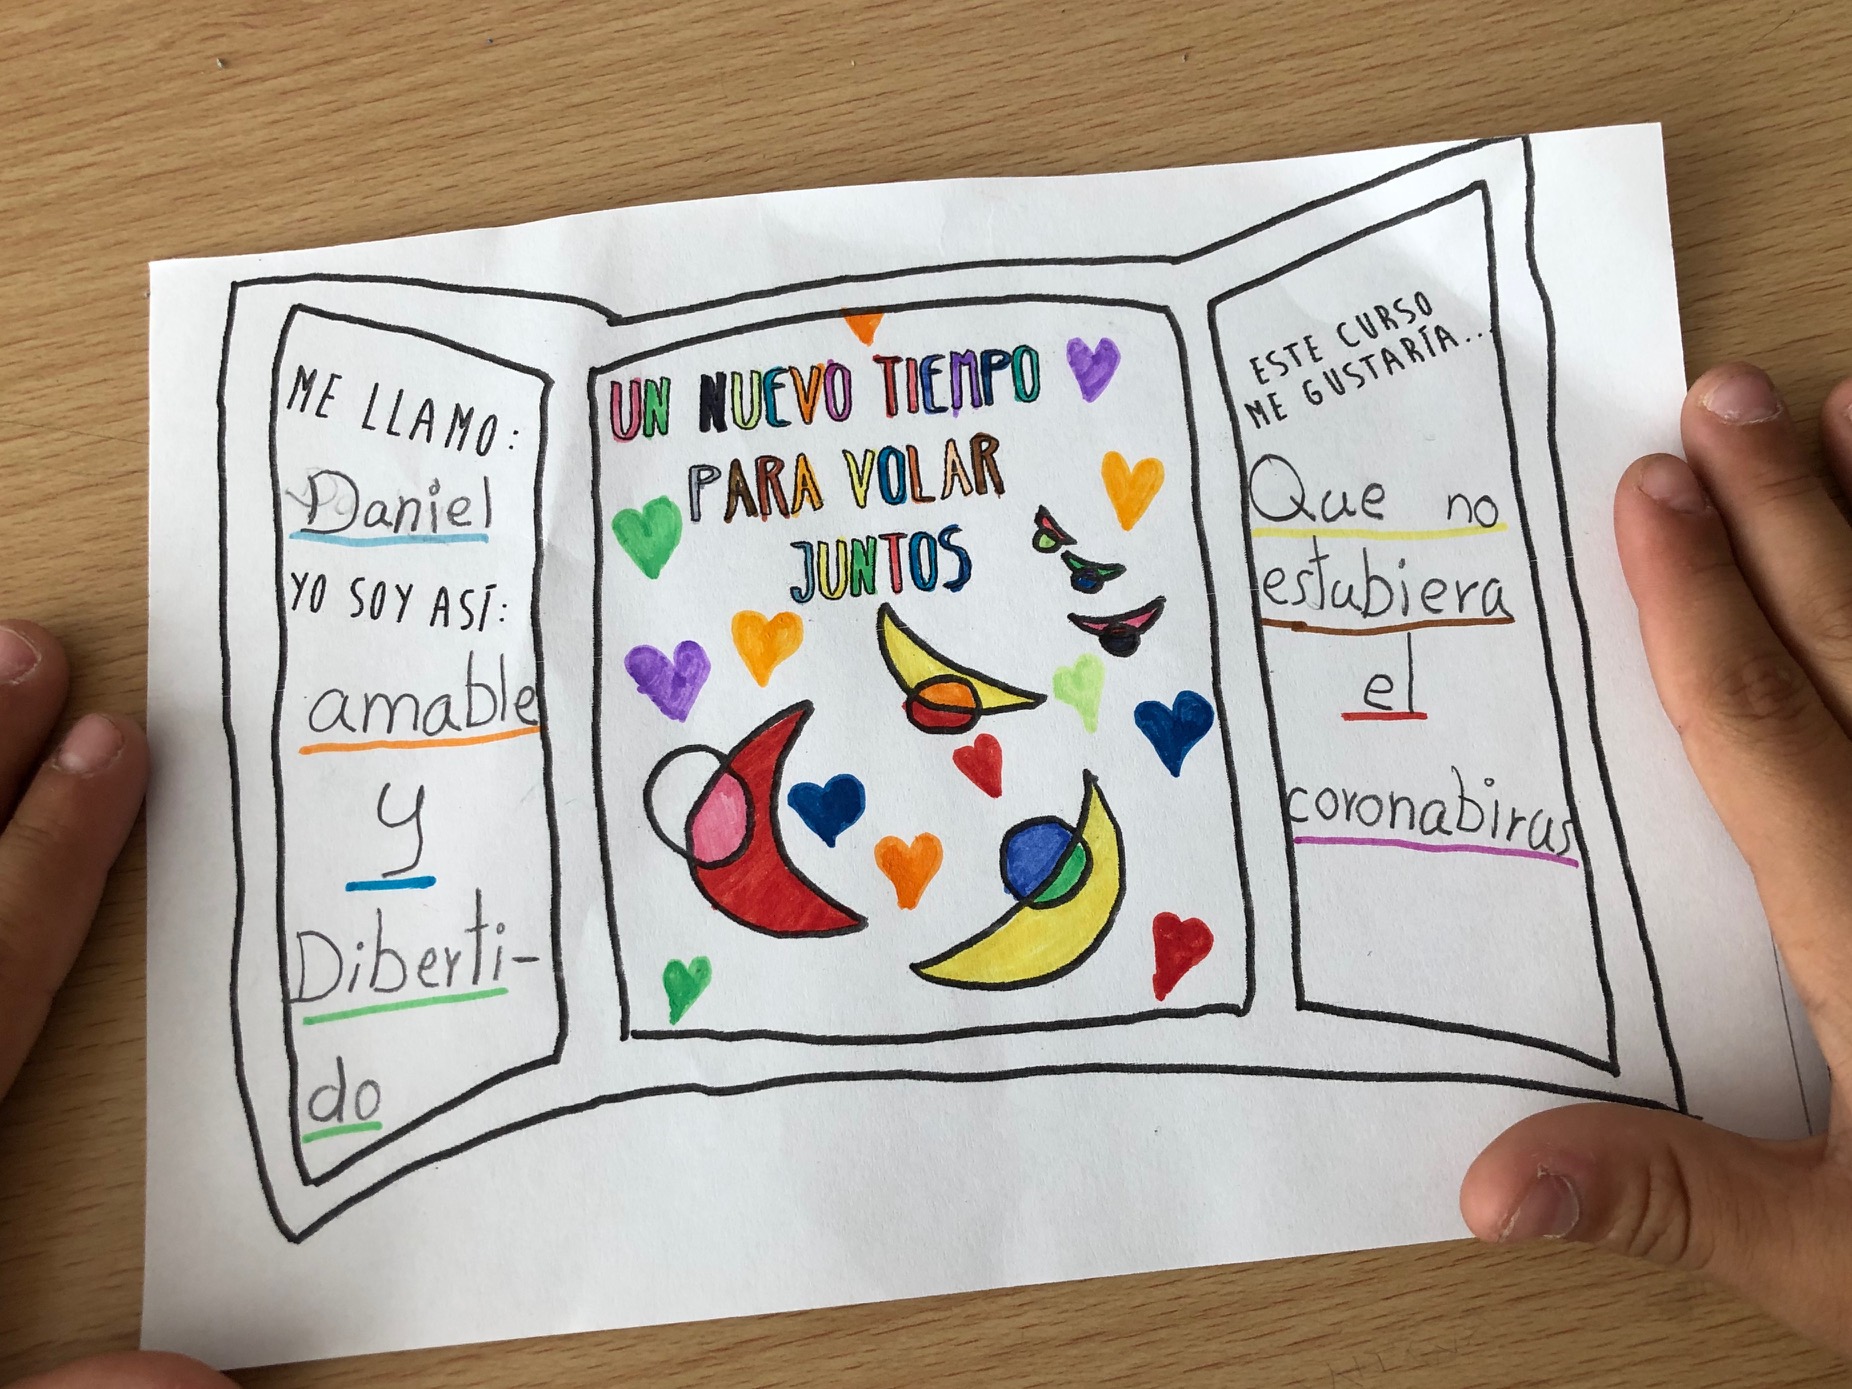 ME LLAMO:
Daniel
YO SOY ASÍ:
amable
y
Diberti-
do
UN NUEVO TIEMPO
PARA VOLAR
JUNTOS
ESTE CURSO
ME GUSTARÍA...
Que no
estubiera
el
coronabirus